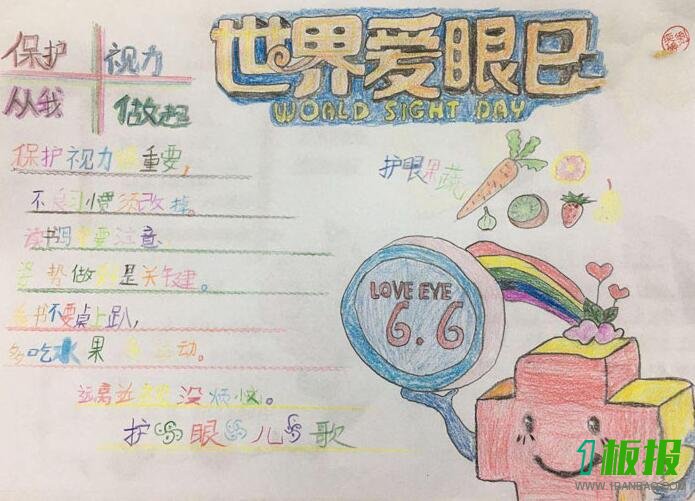 世界爱眼日
WORLD SIGHT DAY
保护 视力
从我 做起
保护视力很重要，
不良习惯须改掉。
读书写字要注意，
姿势做到是关键。
看书不要桌上趴，
多吃水果多运动。
远离近视没烦恼。
护眼儿歌
护眼果蔬
LOVE EYE
6.6
1板报
WWW.1BANBAO.COM